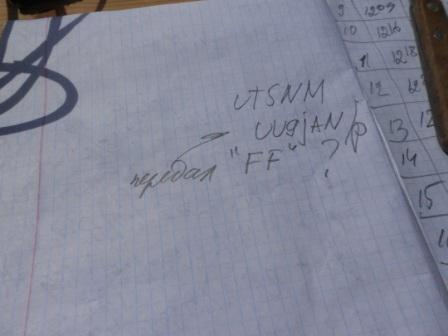 UTSNM
UU9jAN/p
передал "FF" ?
9 1209
10 1216
11 1218
12
13
14
15